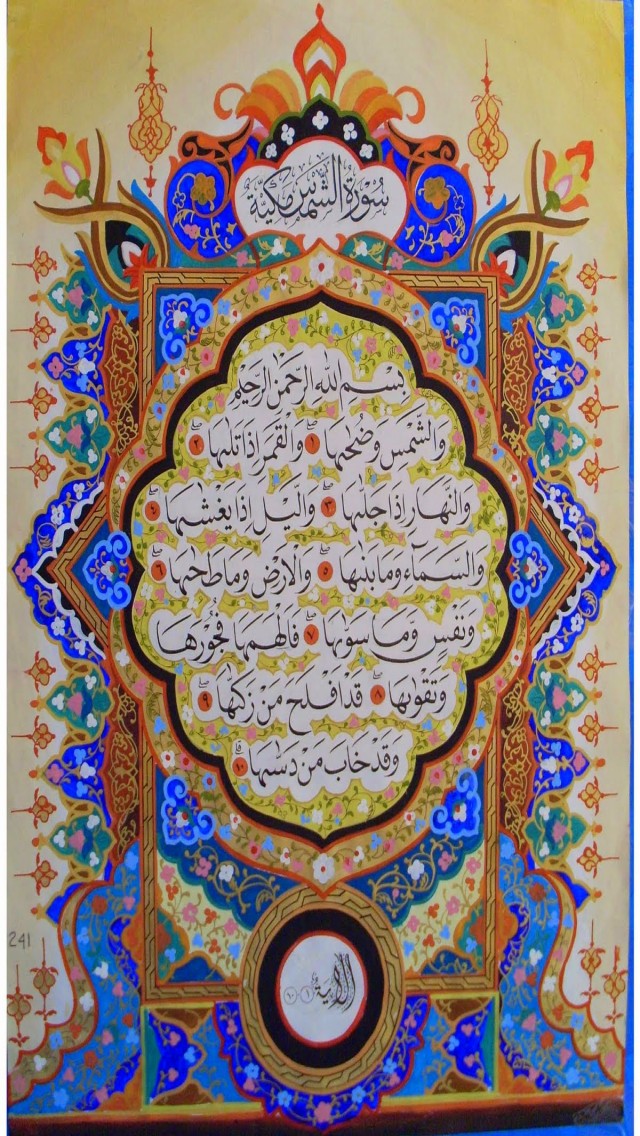 سُوْرَةُ الشَّمْسِ مَكِّيَّة
بِسْمِ اللهِ الرَّحْمٰنِ الرَّحِيْمِ
وَالشَّمْسِ وَضُحٰىهَا ۱ وَالْقَمَرِ اِذَا تَلٰىهَا ۲
وَالنَّهَارِ اِذَا جَلّٰىهَا ۳ وَالَّيْلِ اِذَا يَغْشٰىهَا ٤
وَالسَّمَاۤءِ وَمَا بَنٰىهَا ۵ وَالْاَرْضِ وَمَا طَحٰىهَا ٦
وَنَفْسٍ وَّمَا سَوّٰىهَا ۷ فَاَلْهَمَهَا فُجُوْرَهَا
وَتَقْوٰىهَا ۸ قَدْ اَفْلَحَ مَنْ زَكّٰىهَا ۹
وَقَدْ خَابَ مَنْ دَسّٰىهَا ۱۰
241
الاية